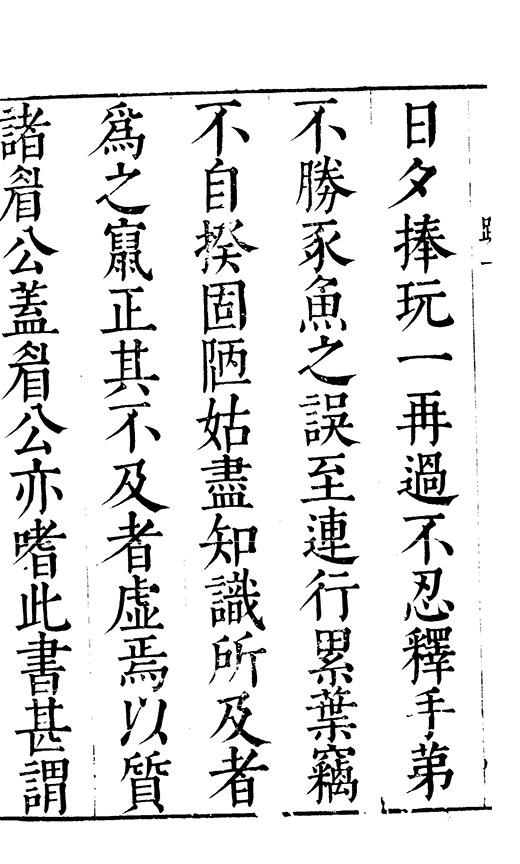 日夕捧玩一再過不忍釋手弟
不勝豕魚之誤至連行累葉竊
不自揆固陋姑盡知識所及者
爲之竄正其不及者虛焉以質
諸眉公蓋眉公亦嗜此書甚謂